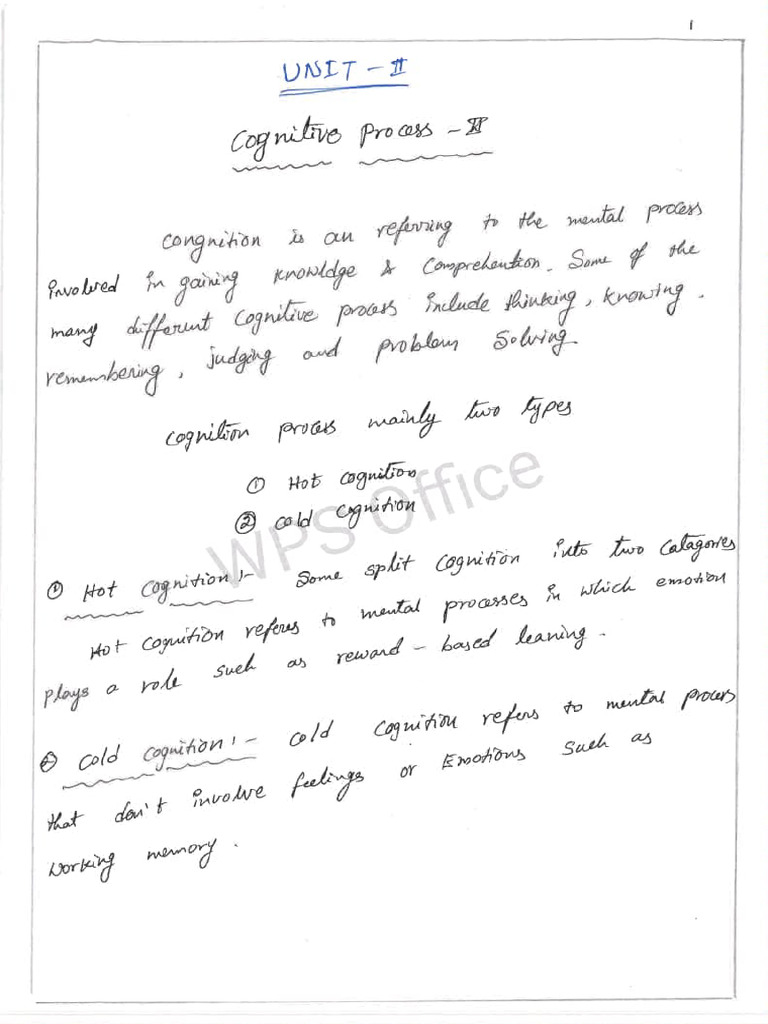 1
UNIT - II
Cognitive Process - II
Congnition is an referring to the mental process
involved in gaining knowldge & Comprehention. Some of the
many different Cognitive process include thinking, knowing.
remembering, judging and problem solving.
Cognition process mainly two types
① Hot cognition
② Cold Cognition
WPS Office
① Hot Cognition :- Some split Cognition into two Catagories
Hot Cognition referes to mental processes in which emotion
plays a role such as reward - based leaning.
② Cold cognition :- Cold Cognition refers to mental process
that don't involve feelings or Emotions such as
Working memory.